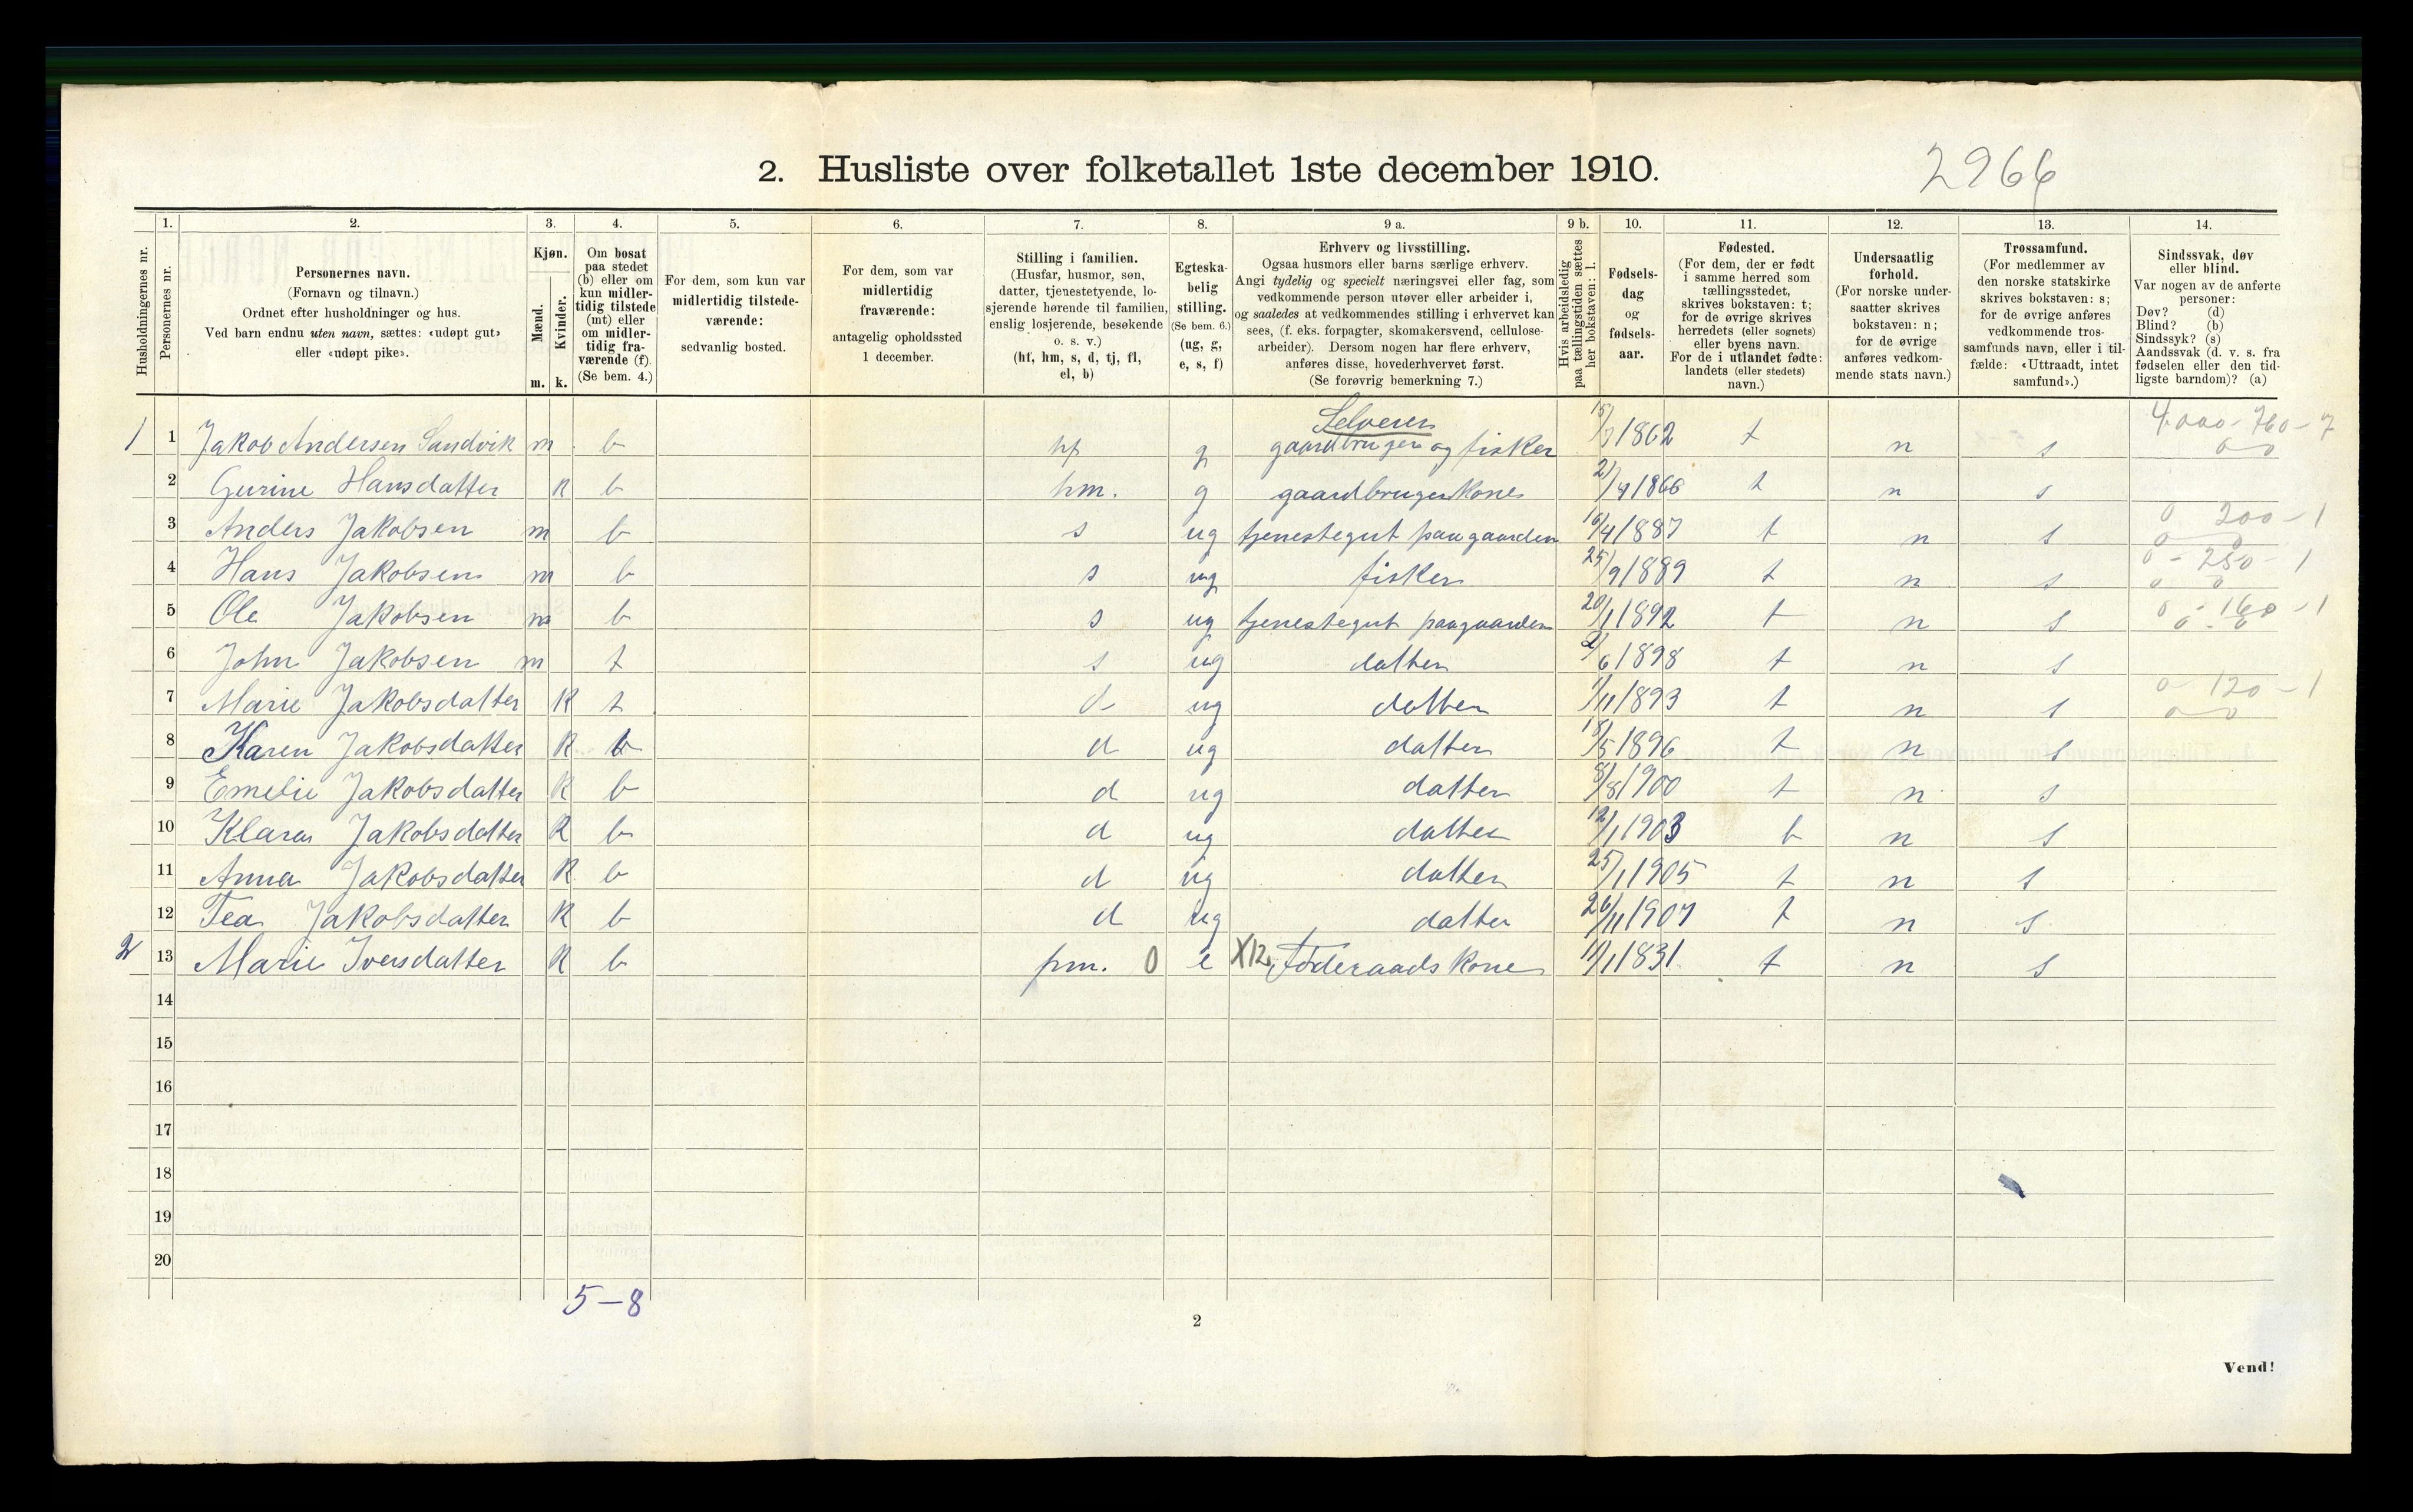 2. Husliste over folketallet 1ste december 1910.
2966
Husholdningernes nr.
1.
Personernes nr.
2.
Personernes navn.
(Fornavn og tilnavn.)
Ordnet efter husholdninger og hus.
Ved barn endnu uten navn, sættes: «udøpt gut»
eller «udøpt pike».
3.
Kjøn.
Mænd.
Kvinder.
m. k.
4.
Om bosat
paa stedet
(b) eller om
kun midler-
tidig tilstede
(mt) eller
om midler-
tidig fra-
værende (f).
(Se bem. 4.)
5.
For dem, som kun var
midlertidig tilstede-
værende:
sedvanlig bosted.
6.
For dem, som var
midlertidig
fraværende:
antagelig opholdssted
1 december.
7.
Stilling i familien.
(Husfar, husmor, søn,
datter, tjenestetyende, lo-
sjerende hørende til familien,
enslig losjerende, besøkende
o. s. v.)
(hf, hm, s, d, tj, fl,
el, b)
8.
Egteska-
belig
stilling.
(Se bem. 6.)
(ug, g,
e, s, f)
9 a.
Erhverv og livsstilling.
Ogsaa husmors eller barns særlige erhverv.
Angi tydelig og specielt næringsvei eller fag, som
vedkommende person utøver eller arbeider i,
og saaledes at vedkommendes stilling i erhvervet kan
sees, (f. eks. forpagter, skomakersvend, cellulose-
arbeider). Dersom nogen har flere erhverv,
anføres disse, hovederhvervet først.
(Se forøvrig bemerkning 7.)
9 b.
Hvis arbeidsledig
paa tællingstiden sættes
her bokstaven: l.
10.
Fødsels-
dag
og
fødsels-
aar.
11.
Fødested.
(For dem, der er født
i samme herred som
tællingsstedet,
skrives bokstaven: t;
for de øvrige skrives
herredets (eller sognets)
eller byens navn.
For de i utlandet fødte:
landets (eller stedets)
navn.)
12.
Undersaatlig
forhold.
(For norske under-
saatter skrives
bokstaven: n;
for de øvrige
anføres vedkom-
mende stats navn.)
13.
Trossamfund.
(For medlemmer av
den norske statskirke
skrives bokstaven: s;
for de øvrige anføres
vedkommende tros-
samfunds navn, eller i til-
fælde: «Uttraadt, intet
samfund».)
14.
Sindssvak, døv
eller blind.
Var nogen av de anførte
personer:
Døv? (d)
Blind? (b)
Sindssyk? (s)
Aandssvak (d. v. s. fra
fødselen eller den tid-
ligste barndom)? (a)
Selveier
4000-760-7
1 1 Jakob Andersen Sandvik m b hf g gaardbruger og fisker 1862 t n s 0 0
2 Gurine Hansdatter k b hm. g gaardbrugerkone 1866 t n s
0 200-1
3 Anders Jakobsen m b s ug tjenestegut paa gaarden 16/4 1887 t n s 0 0
0-250-1
4 Hans Jakobsen m b s ug fisker 25/9 1889 t n s 0 0
0-160-1
5 Ole Jakobsen m b s ug tjenestegut paa gaarden 20/1 1892 t n s 0-0
6 John Jakobsen m t s ug datter 1898 t n s
0-120-1
7 Marie Jakobsdatter k t d ug datter 1/11 1893 t n s 0 0
8 Karen Jakobsdatter k b d ug datter 18/5 1896 t n s
9 Emelie Jakobsdatter k b d ug datter 8/8 1900 t n s
10 Klara Jakobsdatter k b d ug datter 12/1 1903 t n s
11 Anna Jakobsdatter k b d ug datter 25/1 1905 t n s
12 Tea Jakobsdatter k b d ug datter 26/11 1907 t n s
2 13 Marie Iversdatter k b fm. 0 e X12. Føderaadskone 11/1 1831 t n s
14
15
16
17
18
19
20
5-8
2
Vend!